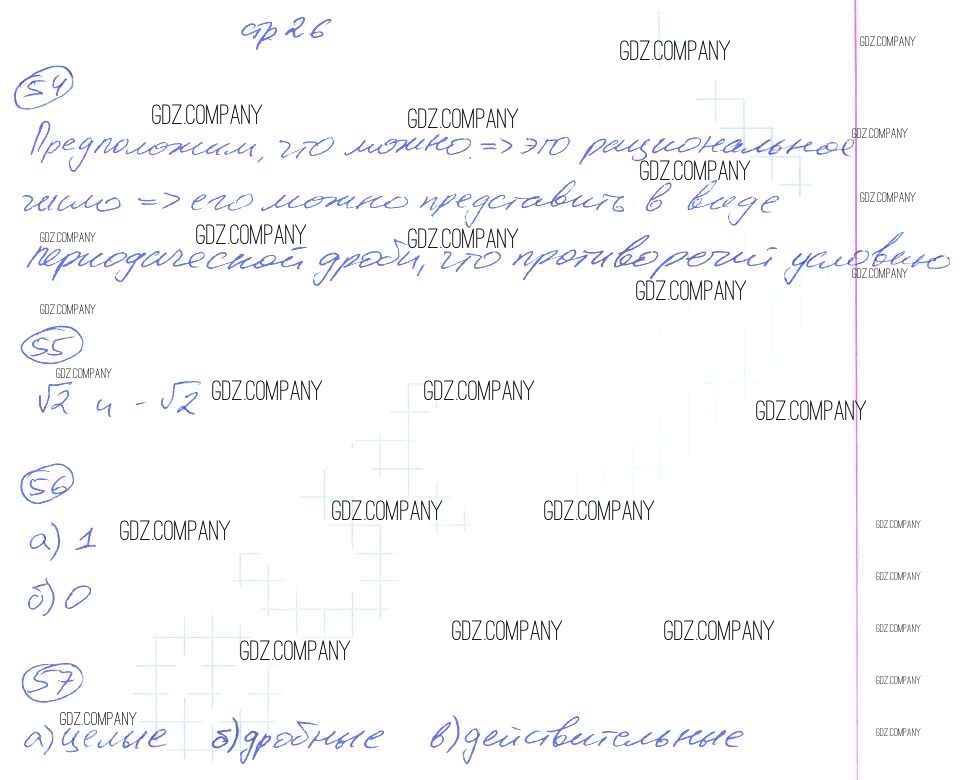 стр 26
GDZ.COMPANY GDZ.COMPANY
54
GDZ.COMPANY GDZ.COMPANY
Предположим, что можно. => это рациональное GDZ.COMPANY
GDZ.COMPANY
число => его можно представить в виде GDZ.COMPANY
GDZ.COMPANY GDZ.COMPANY GDZ.COMPANY
периодической дроби, что противоречит условию GDZ.COMPANY
GDZ.COMPANY
GDZ.COMPANY
55
GDZ.COMPANY
√2 и -√2 GDZ.COMPANY GDZ.COMPANY
GDZ.COMPANY
56
GDZ.COMPANY GDZ.COMPANY
а) 1 GDZ.COMPANY GDZ.COMPANY
GDZ.COMPANY
б) 0
GDZ.COMPANY GDZ.COMPANY GDZ.COMPANY
GDZ.COMPANY
57 GDZ.COMPANY
GDZ.COMPANY
а) целые б) дробные в) действительные GDZ.COMPANY